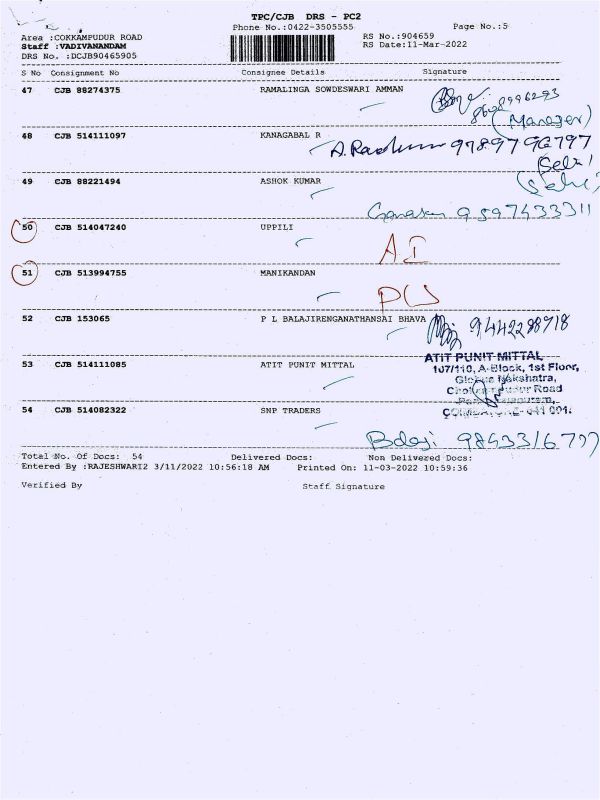 TPC/CJB DRS - PC2
Phone No.:0422-3505555 Page No.:5
Area :COKKAMPUDUR ROAD RS No.:904659
Staff :VADIVANANDAM RS Date:11-Mar-2022
DRS No. :DCJB90465905
S No Consignment No Consignee Details Signature
47 CJB 88274375 RAMALINGA SOWDESWARI AMMAN
(Manager)
48 CJB 514111097 KANAGABAL R 9789796797
49 CJB 88221494 ASHOK KUMAR
9597433311
50 CJB 514047240 UPPILI
AI
51 CJB 513994755 MANIKANDAN
52 CJB 153065 P L BALAJIRENGANATHANSAI BHAVA 9442288918
53 CJB 514111085 ATIT PUNIT MITTAL
ATIT PUNIT MITTAL
107/110, A-Block, 1st Floor,
Nakshatra,
Road
54 CJB 514082322 SNP TRADERS
Balaji
Total No. Of Docs: 54 Delivered Docs: Non Delivered Docs:
Entered By :RAJESHWARI2 3/11/2022 10:56:18 AM Printed On: 11-03-2022 10:59:36
Verified By Staff Signature